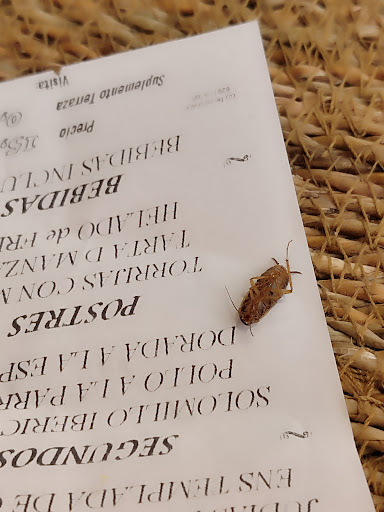 JUDI
ENS TEMPLADA DE
SEGUNDOS
SOLOMILLO IBERIC
POLLO A LA PARR
DORADA A LA ESP
POSTRES
TORRIJAS CON M
TARTA D MANZA
HELADO de FR
BEBIDAS
BEBIDAS INCLU
Precio
Suplemento Terraza
Visita